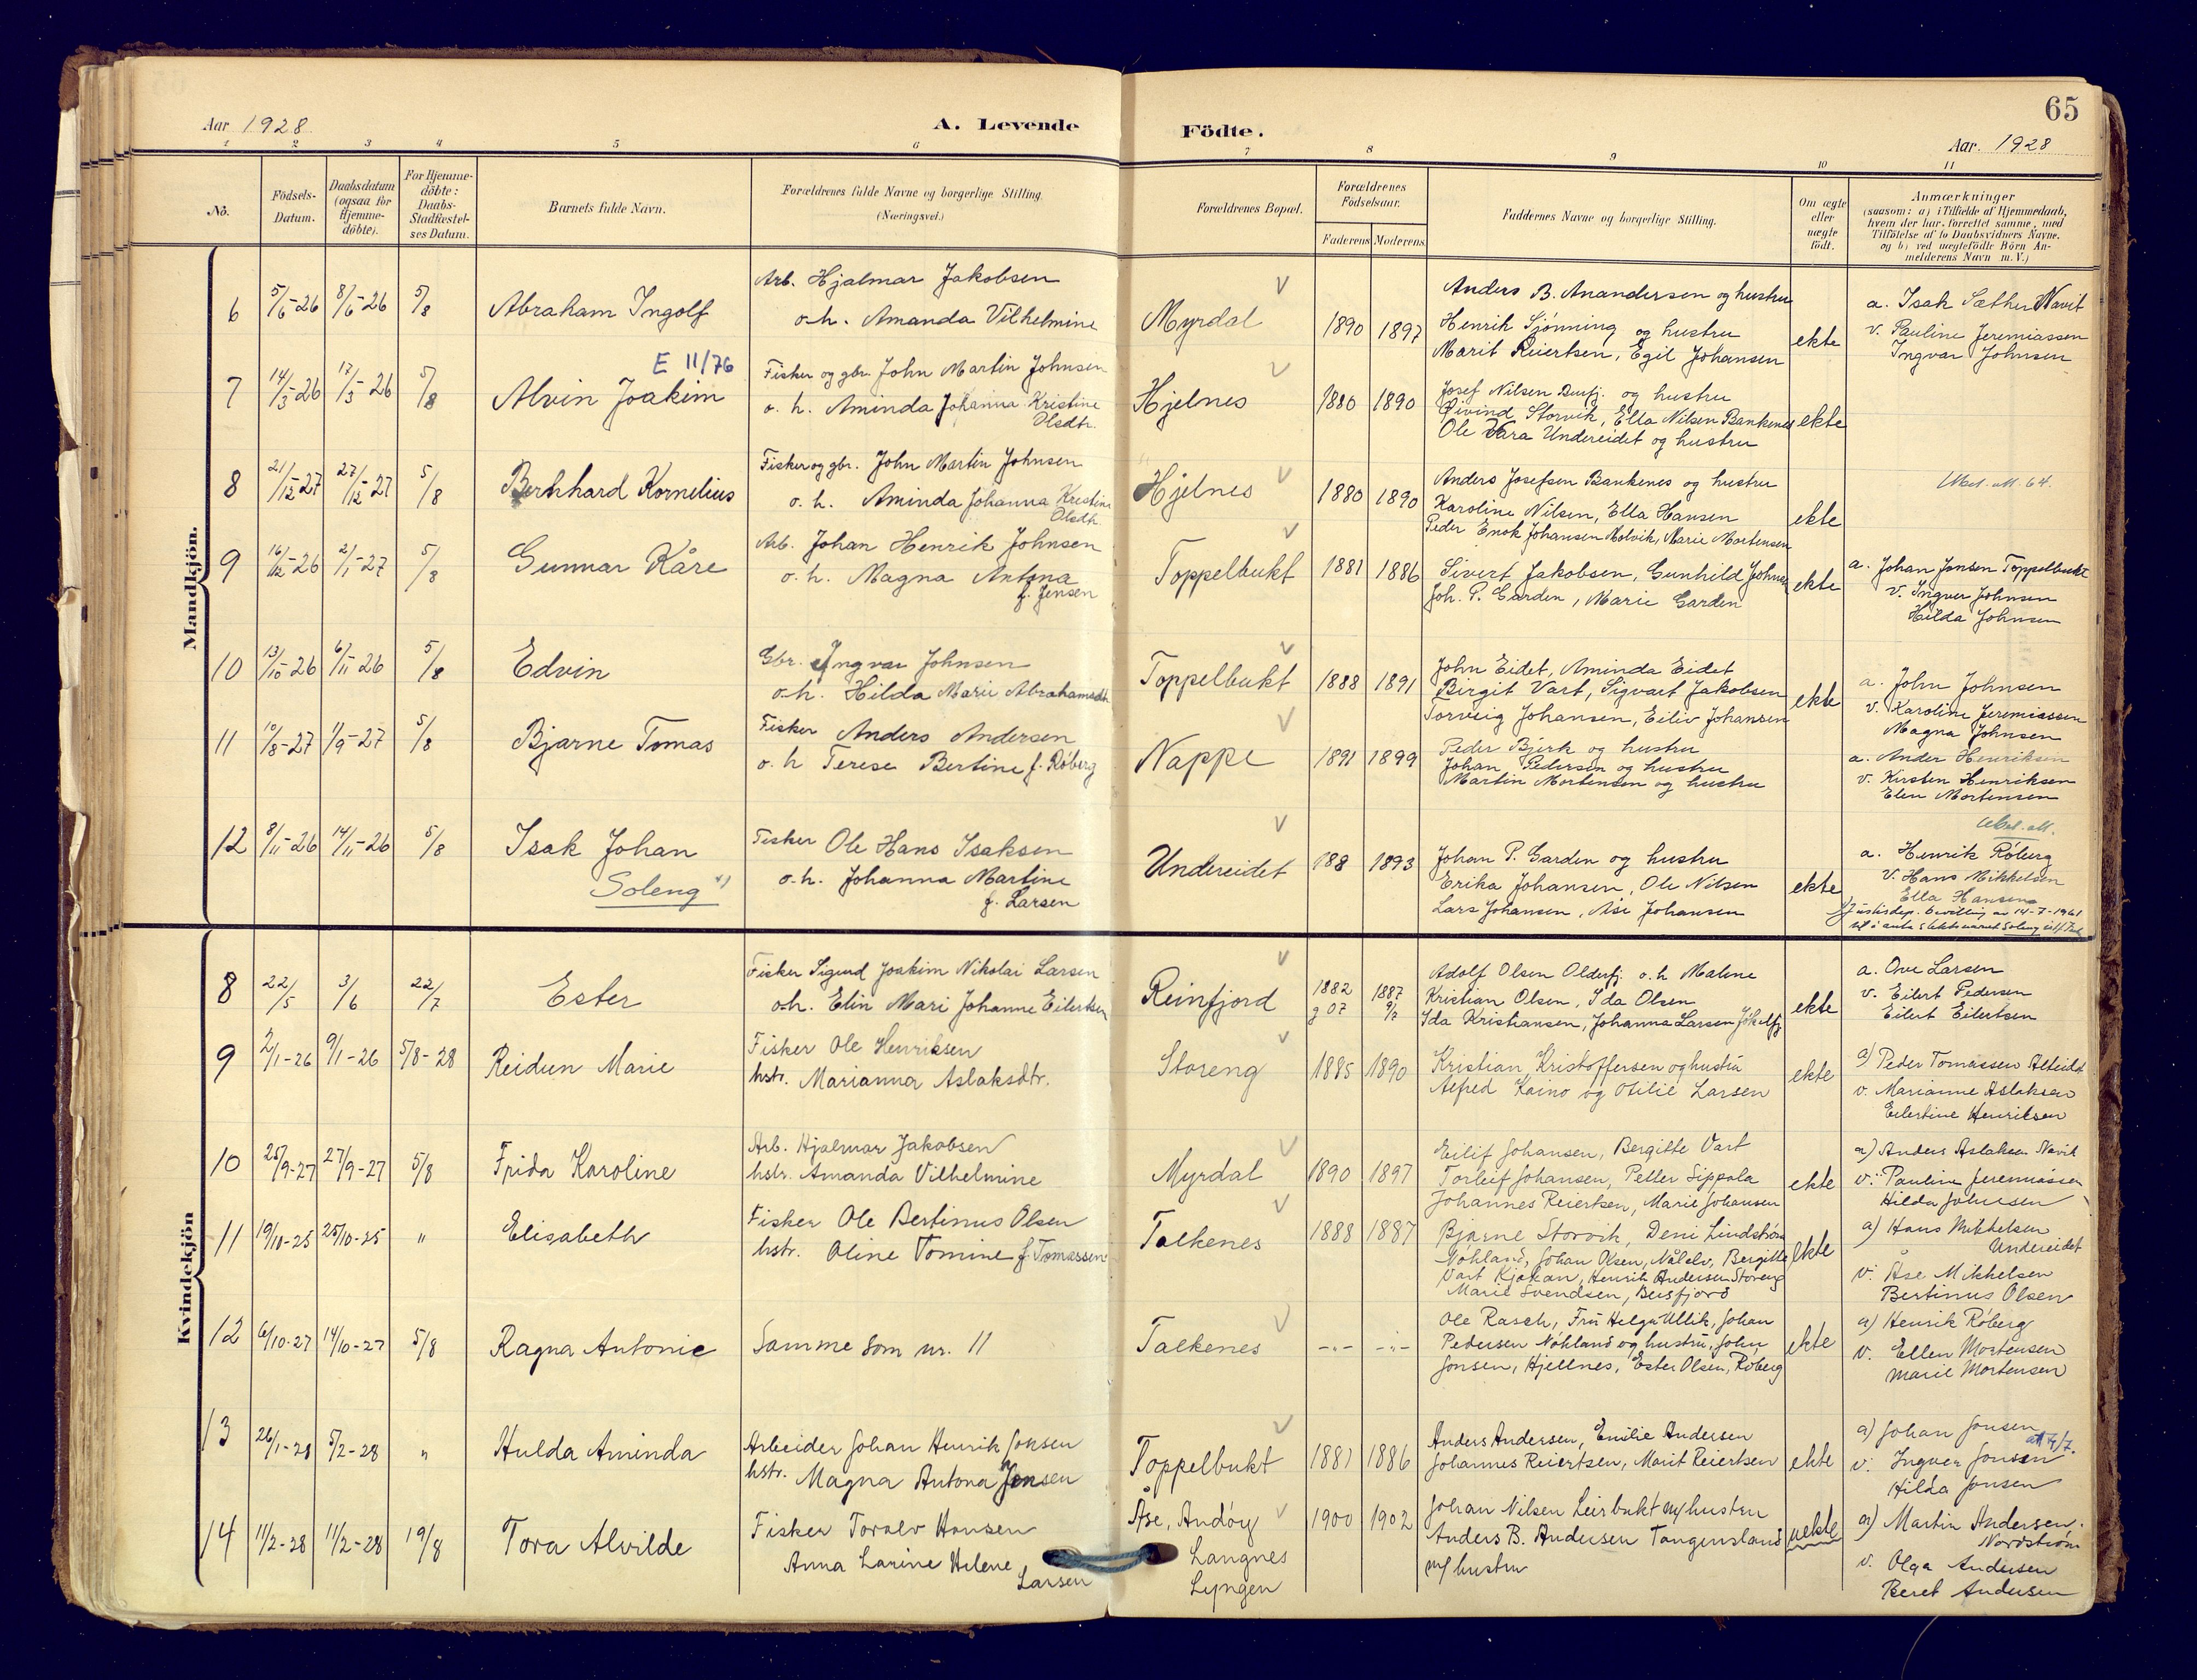 65
Aar 1928
A. Levende
Födte.
Aar. 1928
1 2 3 4 5 6 7 8 9 10 11
No.
Födsels-
Datum.
Daabsdatum
(ogsaa for
Hjemme-
döbte).
For Hjemme-
döbte:
Daabs-
Stadfæstel-
ses Datum.
Barnets fulde Navn.
Forældrenes fulde Navne og borgerlige Stilling.
(Næringsvei.)
Forældrenes Bopæl.
Forældrenes
Födselsaar.
Faderens Moderens
Faddernes Navne og borgerlige Stilling.
Om ægte
eller
uægte
født.
Anmærkninger
(saasom: a) i Tilfælde af Hjemmedaab,
hvem der har forrettet samme, med
Tilföielse af to Daabsvidners Navne,
og b) ved uægtefödte Börn An-
melderens Navn m. V.)
Mandkjön.
6 5/6-26 8/6-26 5/8 Abraham Ingolf
Arb. Hjalmar Jakobsen
o.h. Amanda Vilhelmine
Myrdal 1890 1897
Anders B. Anandersen og hustru
Henrik Sjønning og hustru
Marit Reiertsen, Egil Johansen
ekte
a. Isak Sæther Navit
v. Pauline Jeremiassen
Ingvar Johnsen
E 11/76
7 14/3-26 17/3-26 5/8 Alvin Joakim
Fisker og gbr. John Martin Johnsen
o. h. Aminda Johanna Kristine
Olsdtr.
Hjelnes 1880 1890
Josef Nilsen Burfj. og hustru
Øivind Storvik, Ella Nilsen Bankenes
Ole Vara Undereidet og hustru
ekte
8 21/12-27 27/12-27 5/8 Bernhard Kornelius
Fisker og gbr. John Martin Johnsen
o. h. Aminda Johanna Kristine
Olsdtr.
Hjelnes 1880 1890
Anders Josefsen Bankenes og hustru
Karoline Nilsen, Ella Hansen
Peder Enok Johansen Molvik, Marie Mortensen
ekte
9 16/12-26 2/1-27 5/8 Gunnar Kåre
Arb. Johan Henrik Johnsen
o. h. Magna Antona
f. Jensen
Toppelbukt 1881 1886
Sivert Jakobsen, Gunhild Johnsen
Joh. P. Garden, Marie Garden
ekte
a. Johan Jonsen Toppelbukt
v. Ingver Johnsen
Hilda Johnsen
10 13/10-26 6/11-26 5/8 Edvin
Gbr. Ingvar Johnsen
o.h. Hilda Marie Abrahamsdtr
Toppelbukt 1888 1891
John Eidet, Aminda Eidet
Birgit Vart, Sigvart Jakobsen
Torveig Johansen, Eiliv Johansen
ekte
a. John Johnsen
v. Karoline Jeremiassen
Magna Johnsen
11 10/8-27 1/9-27 5/8 Bjarne Tomas
Fisker Anders Andersen
o. h Terese Bertine f. Röberg
Nappe 1891 1899
Peder Bjerk og hustru
Johan Pedersen og hustru
Martin Mortensen og hustru
a. Ander Henriksen
v. Kirsten Henriksen
Elen Mortensen
12 8/11-26 14/11-26 5/8 Isak Johan
Soleng x)
Fisker Ole Hans Isaksen
o.h. Johanna Martine
f. Larsen
Undereidet 188 1893
Johan P. Garden og hustru
Erika Johansen, Ole Nilsen
Lars Johansen, Åse Johansen
ekte
a. Henrik Röberg
v. Hans Mikkelsen
Ella Hansen
x) Justisdep. bevilling av 14-7-1961
til å anta slektsnavnet Soleng
Kvindekjön
8 22/5 3/6 22/7 Ester
Fisker Sigurd Joakim Nikolai Larsen
o.h. Elin Mari Johanne Eilertsen
Reinfjord 1882 1887
g 07 9/7
Adolf Olsen Olderfj. o.h Malene
Kristian Olsen, Ida Olsen
Ida Kristiansen, Johanna Larsen Jökelfj
ekte
a. Ove Larsen
v. Eilert Pedersen
Eilert Eilertsen
9 2/1-26 9/1-26 5/8-28 Reidun Marie
Fisker Ole Henriksen
hstr. Marianna Aslaksdtr.
Storeng 1885 1890
Kristian Kristoffersen og hustru
Alfred Kaino og Otilie Larsen
ekte
a) Peder Tomassen Alteidet
v. Marianne Aslaksen
Eilertine Henriksen
10 25/9-27 27/9-27 5/8 Frida Karoline
Arb. Hjalmar Jakobsen
hstr. Amanda Vilhelmine
Myrdal 1890 1897
Eilif Johansen, Bergitte Vart
Torleif Johansen, Petter Sippola
Johannes Reiertsen, Marie Johansen
ekte
a) Anders Aslaksen Navit
v. Pauline Jeremiassen
Hilda Johnsen
11 19/10-25 25/10-25 " Elisabeth
Fisker Ole Bertinus Olsen
hstr. Oline Tomine f. Tomassen
Talkenes 1888 1887
Bjarne Storvik, Deni Lindstrøm
Nöhland, Johan Olsen, Nålelv, Bergitte
Vart Kjøkan, Henrik Andersen Storeng
Marie Svendsen, Burfjord
ekte
a) Hans Mikkelsen
Undereidet
v. Åse Mikkelsen
Bertinus Olsen
12 6/10-27 14/10-27 5/8 Ragna Antonie
Samme som nr. 11
Talkenes -"- -"-
Ole Rasch, Fru Helga Ullik, Johan
Pedersen Nöhland og hustru, John
Jonsen, Hjellnes, Ester Olsen, Röberg
ekte
a) Henrik Röberg
v. Ellen Mortensen
Marie Mortensen
13 26/1-28 5/2-28 " Hulda Aminda
Arbeider Johan Henrik Jonsen
hstr. Magna Antona Jensen
Toppelbukt 1881 1886
Anders Andersen, Emilie Andersen
Johannes Reiertsen, Marit Reiertsen
ekte
a) Johan Jonsen
v. Ingver Jonsen
Hilda Jonsen
14 11/2-28 11/2-28 19/8 Tora Alvilde
Fisker Toralv Hansen
Anna Larine Helene
Larsen
Åse, Andöy
Langnes
Lyngen
1900 1902
Johan Nilsen Leirbukt m/hustru
Anders B. Andersen Tangensland
m/hustru
uekte
a) Martin Andersen
Nordström
v. Olga Andersen
Beret Andersen